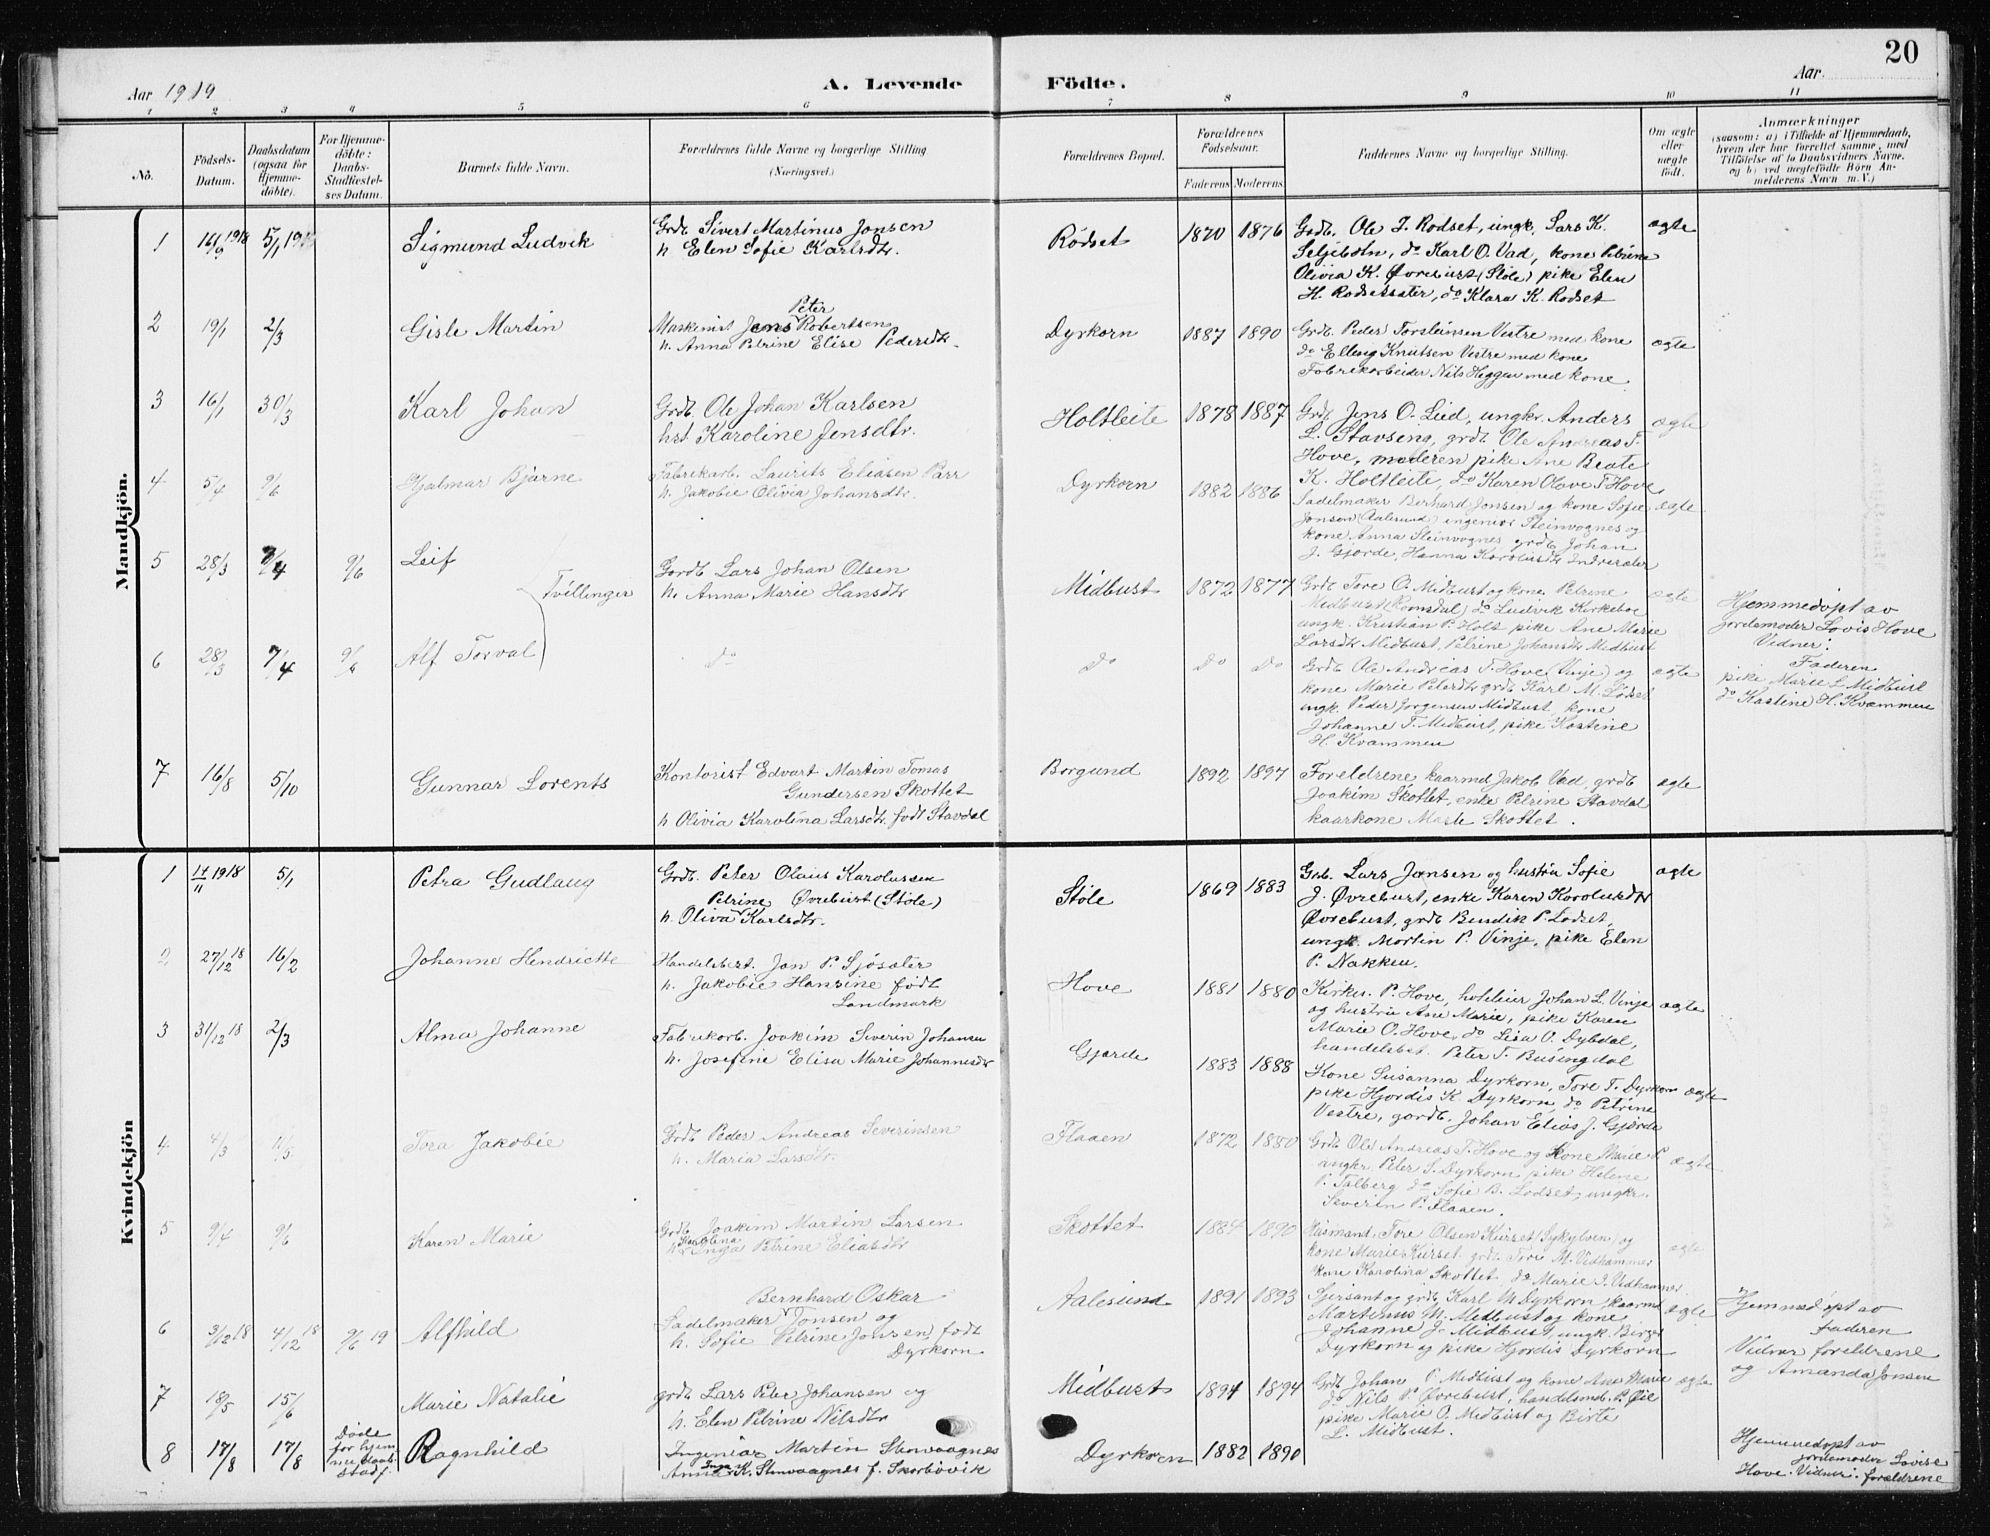 20
Aar 1919
A. Levende Födte.
Aar.
1 2 3 4 5 6 7 8 9 10 11
No.
Födsels-Datum.
Daabsdatum (ogsaa for Hjemmedöbte).
For Hjemmedöbte: Daabs-Stadfæstelses Datum.
Barnets fulde Navn.
Forældrenes fulde Navne og borgerlige Stilling (Næringsvei.)
Forældrenes Bopæl.
Forældrenes Födselsaar.
Faderens Moderens
Faddernes Navne og borgerlige Stilling.
Om ægte eller uægte født.
Anmærkninger
(saasom: a) i Tilfælde af Hjemmedaab,
hvem der har forrettet samme, med
Tilföielse af to Daabsvidners Navne.
og b) ved uægtefödte Börn An-
melderens Navn m. V.)
Mandkjön.
1 16/9 1918 5/1 Sigmund Ludvik
Grdb. Sivert Martinus Jonsen
h. Elen Sofie Karlsdtr.
Rödset 1870 1876
Grdb. Ole J. Rødset, ungk. Lars K.
Seljebotn, do Karl O. Vad, kone Petrine
Olivia K. Øvrebust (Støle) pike Elen
H. Rødsetsæter, do Klara K. Rødset
ægte
2 19/1 2/3 Gisle Martin
Peter
Maskinist Jens Robertsen
h. Anna Petrine Elise Pedersdtr.
Dyrkorn 1887 1890
Grdb. Peder Torsteinsen Vestre med kone
do Elling Knutsen Vestre med kone
Fabrikarbeider Nils Heggen med kone
ægte
3 16/1 30/3 Karl Johan
Grdb. Ole Johan Karlsen
hst. Karoline Jensdtr.
Holtleite 1878 1887
Grdb. Jens O. Lied, ungkr. Anders
L. Stavseng, grdb. Ole Andreas T.
Hove, moderen pike Ane Beate
K. Holtleite, do Karen Olave T. Hove
ægte
4 5/4 9/6 Hjalmar Bjarne
Fabrikarb. Laurits Eliasen Parr
h. Jakobie Olivia Johansdtr.
Dyrkorn 1882 1886
Sadelmaker Berhard Jonsen og kone Sofie
Jonsen (Aalesund) ingeniør Steinvognes og
kone Anna Steinvognes grdb Johan
J. Gjørde, Hanna Karolusdtr Indresæter
ægte
5 28/3 7/4 9/6 Leif
Tvillinger
Gardb Lars Johan Olsen
h. Anna Marie Hansdtr
Midbust 1872 1877
Grdb Tore O. Midbust og kone Petrine
Midbust (Romsdal) do Ludvik Kirkeboe
ungk. Kristian P. Holt pike Ane Marie
Larsdtr Midbust, Petrine Johansdtr Midbust
ægte
Hjemmedöpt av
jordemoder Lovise Hove
Vidner:
Faderen
pike Marie L Midbust
do Kastine H. Kvammen
6 28/3 7/4 9/6 Alf Torval
do do do do
Grdb Ole Andreas T. Hove (Vinje) og
kone Marie Petersdtr grdb Karl M. Lødset
ungk. Peder Jørgensen Midbust, kone
Johanne T. Midbust, pike Kastine
H. Kvammen
ægte
7 16/8 5/10 Gunnar Lorents
Kontorist Edvart Martin Tomas
Gundersen Skottet
h Olivia Karolina Larsdtr. født Stavdal
Borgund 1892 1897
Foreldrene kaarmd Jakob Vad, grdb
Joakim Skottet, enke Petrine Stavdal
kaarkone Marte Skottet.
ægte
Kvindekjön
1 14/11 1918 5/1 Petra Gudlaug
Grdb. Peter Olaus Karolussen
Petrine Øvrebust (Støle)
h. Oliva Karlsdtr.
Støle 1869 1883
Grb. Lars Jansen og hustru Sofie
J. Øvrebust, enke Karen Karolusdtr
Øvrebust, grdb Bendik P. Lødset,
ungk. Martin P. Vinje, pike Elen
P. Nakken.
ægte
2 27/12 18 16/2 Johanne Hendriette
Handelsbest. Jon P. Sjøsæter
h. Jakobie Hansine født
Landmark
Hove 1881 1880
Kirkes. P. Hove, hotteier Johan L. Vinje
og hustru Ane Marie, pike Karen
Marie O. Hove, do Lisa O. Dybdal,
handelsbst. Peter T. Busengdal
ægte
3 31/12 18 2/3 Alma Johanne
Fabrikarb. Joakim Severin Johansen
h. Josefine Elisa Marie Johannesdtr
Gjørde 1883 1888
Kone Susanna Dyrkorn, Tore T. Dyrkorn
pike Hjørdis K. Dyrkorn, do Petrine
Vestre, gardb. Johan Elias J. Gjørde
ægte
4 4/3 11/5 Tora Jakobie
Grdb Peder Andreas Severinsen
h. Maria Larsdtr.
Flaaen 1872 1880
Grdb Ole Andreas T. Hove og kone Marie P.
ungkr. Peter S. Dyrkorn, pike Helene
P. Talberg do Sofie B. Lødset, ungkr.
Severin P. Flaaen.
ægte
5 9/4 9/6 Karen Marie
Grdb. Joakim Martin Larsen
Karolina
h. Inga Petrine Eliasdtr
Skottet 1884 1890
Husmand Tore Olsen Kurset (Sykylven) og
kone Marie Kurset, grdb. Tore M. Vidhammer
kone Karolina Skottet, do Marie J. Vidhammer
ægte
6 3/12 18 4/12 18 9/6 19 Alfhild
Bernhard Oskar
Sadelmaker Jonsen og
h. Sofie Petrine Jonsen, født
Dyrkorn
Aalesund 1891 1893
Sersant og grdb. Karl M Dyrkorn, kaarmd
Martinus M. Midbust og kone
Johanne J. Midbust, ungk. Birger
Dyrkorn og pike Hjørdis Dyrkorn
ægte
Hjemmedöpt av
faderen
Vidner foreldrene
og Amanda Jonsen
7 18/5 15/6 Marie Natalie
grdb Lars Peter Johansen og
h. Elen Petrine Nilsdtr
Midbust 1894 1894
Grdb Johan P. Midbust og kone Ane Marie
do Nils P. Øvrebust, handlsmd. P. Øie
pike Marie O. Midbust og Birte
L. Midbust.
ægte
8 17/8 17/8
Døde
før hjem-
medaabs-
stadf.
Ragnhild
Ingeniør Martin Stenvaagnes
Inga
Anna K. Stenvaagnes f. Skorbövik
Dyrkorn 1882 1890
Hjemmedöpt av
jordemoder Lovise
Hove. Vidner: forældrene